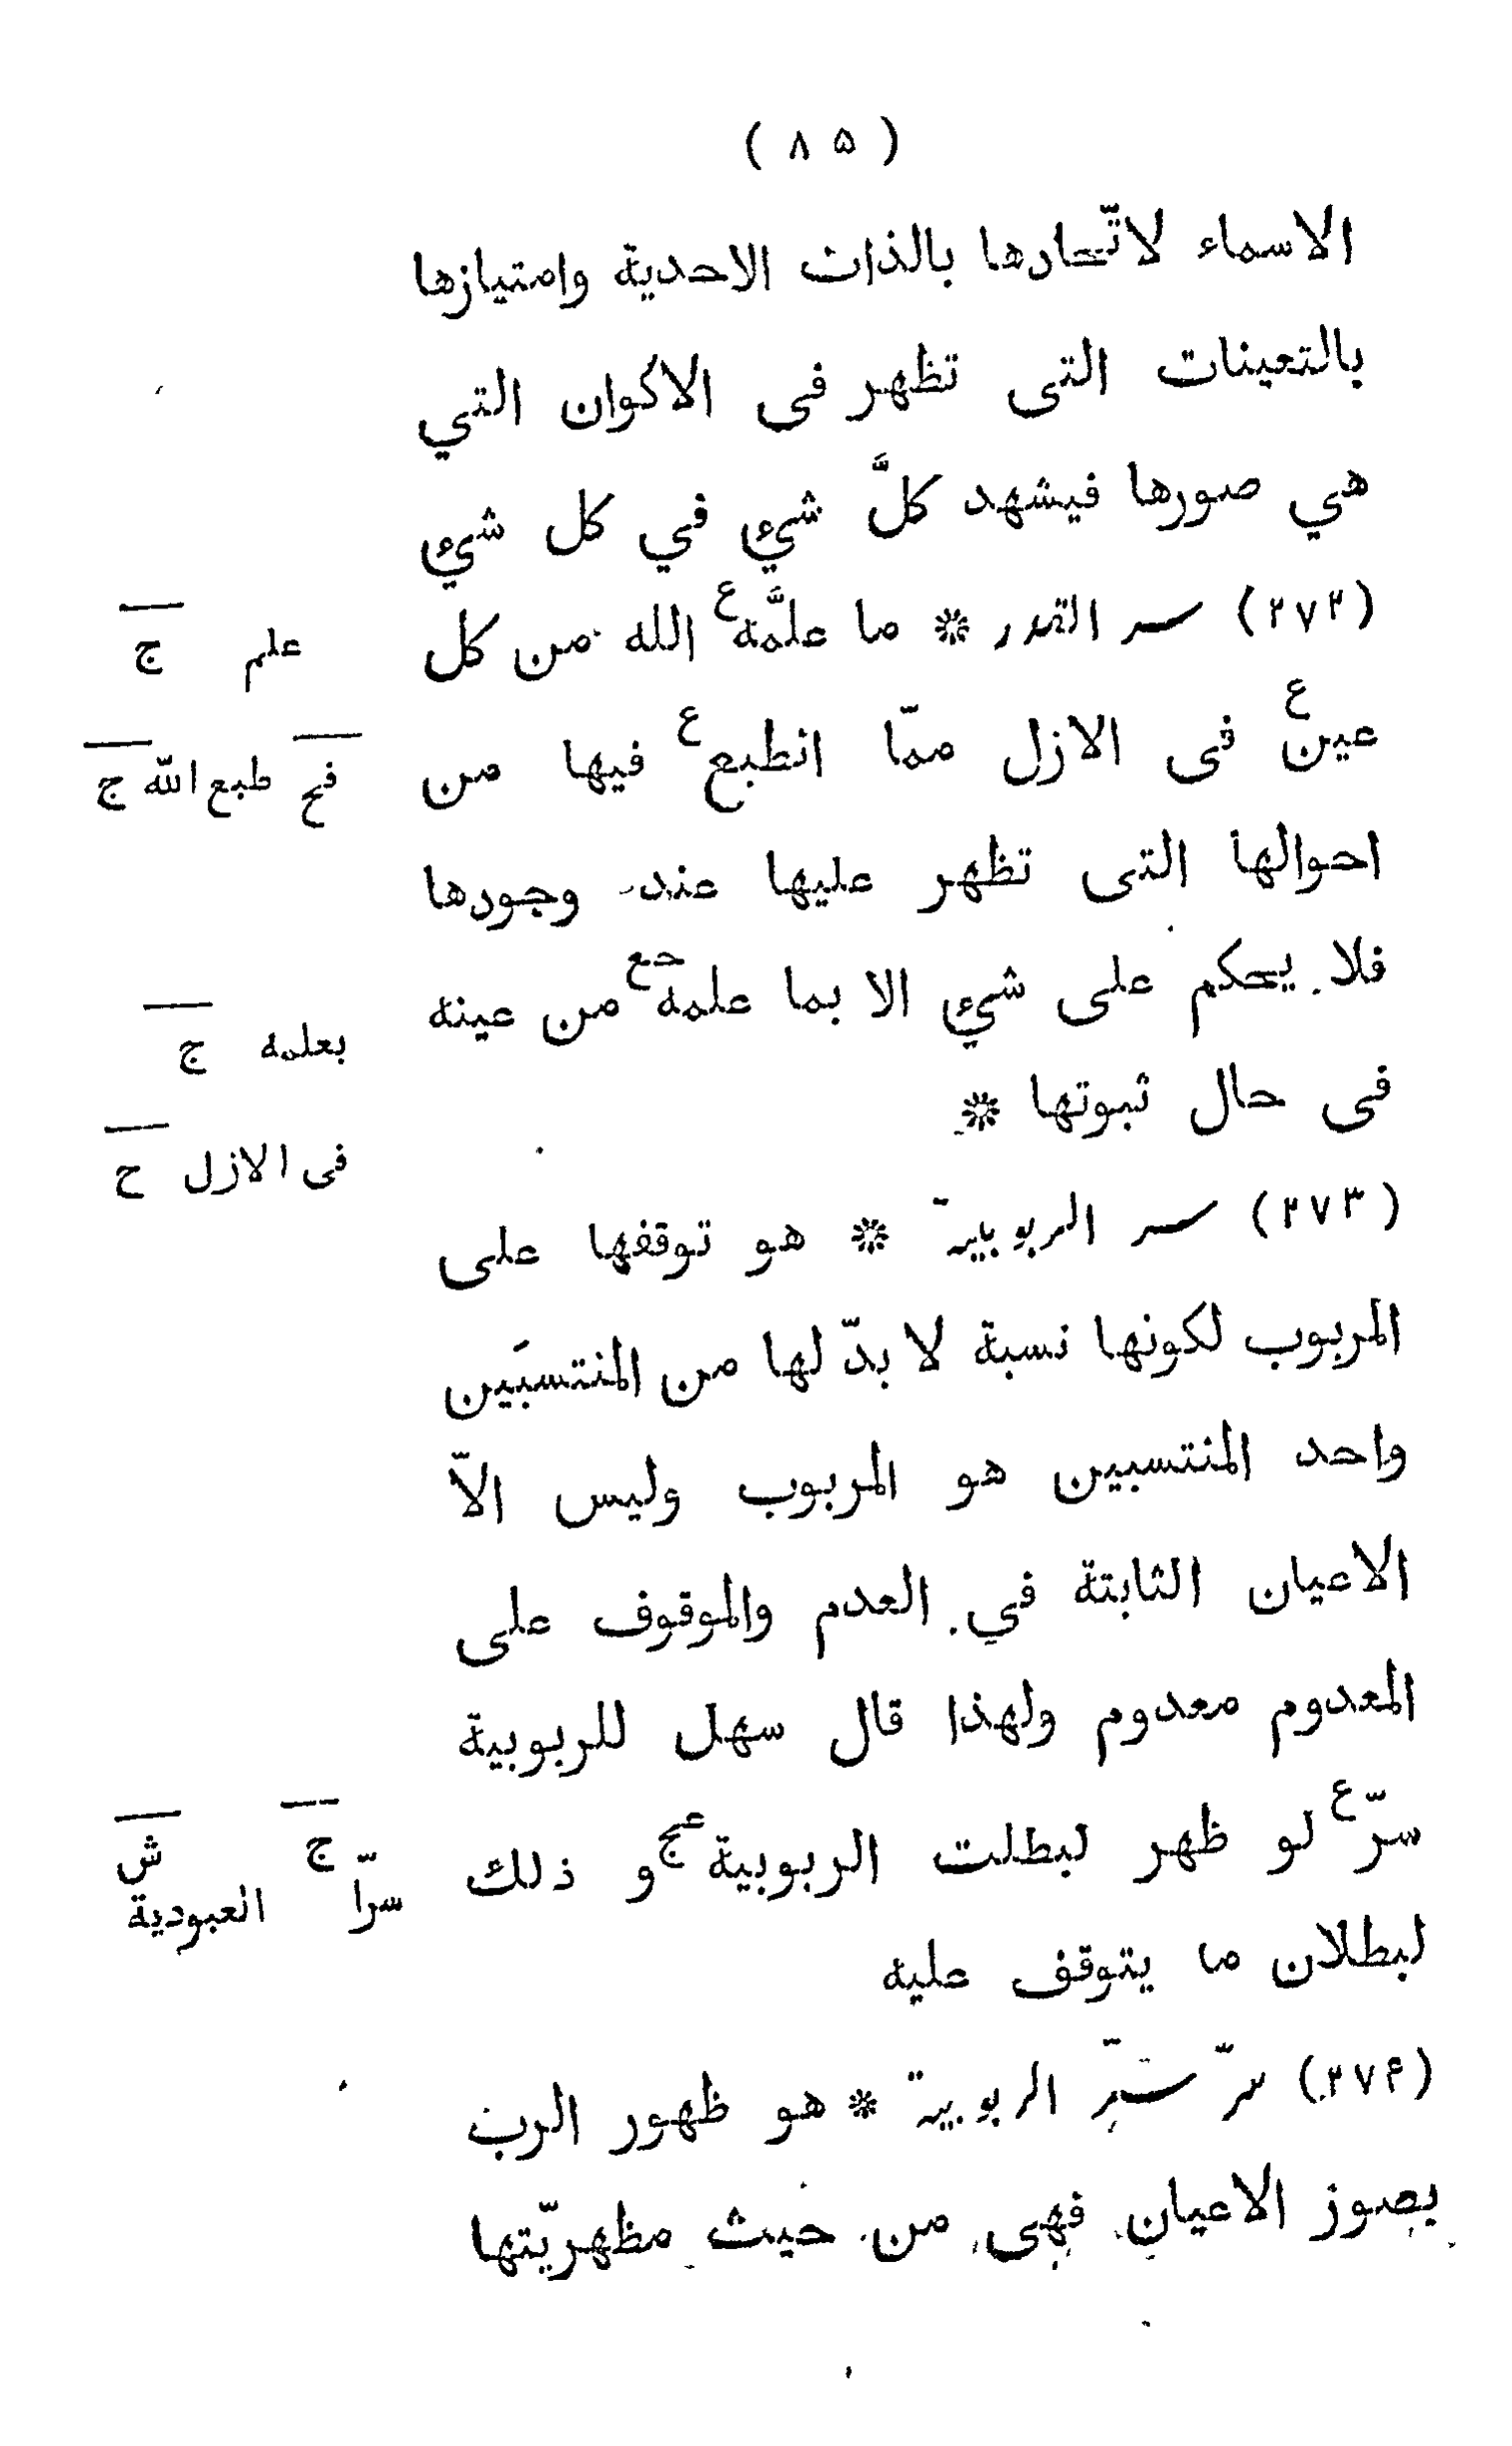 ( ٨٥ )
الاسماء لاتّحادها بالذات الاحدية وامتيازها
بالتعينات التى تظهر فى الاكوان التي
هي صورها فيشهد كلَّ شيء في كل شيء
(٢٧٢) سر القدر * ما علمَّه ع الله من كل
علم ج
عين ع فى الازل ممّا انطبع ع فيها من
فح طبع الله ج
احوالها التى تظهر عليها عند وجودها
فلا يحكم على شيء الا بما علمه حع من عينه
بعلمه ج
فى حال ثبوتها *
فى الازل ح
(٢٧٣) سر الربوبية * هو توقفها على
المربوب لكونها نسبة لا بدّ لها من المنتسبَين
واحد المنتسبين هو المربوب وليس الاّ
الاعيان الثابتة في العدم والموقوف على
المعدوم معدوم ولهذا قال سهل للربوبية
سرّ ع لو ظهر لبطلت الربوبية عج و ذلك
سرّا ج العبودية ش
لبطلان ما يتوقف عليه
(٢٧۴) سرّ سرّ الربوبية * هو ظهور الرب
بصور الاعيان فهى من حيث مظهريّتها